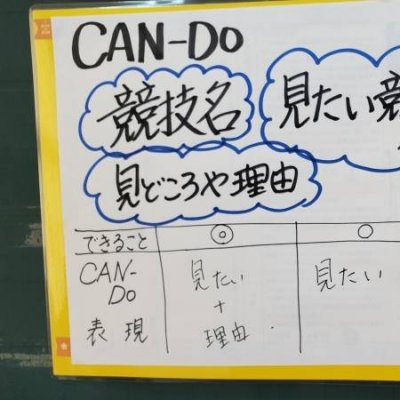 CAN-DO
競技名
見たい競
見どころや理由
できること ◎ ○
CAN-
DO
表現
見たい
+
理由
見たい